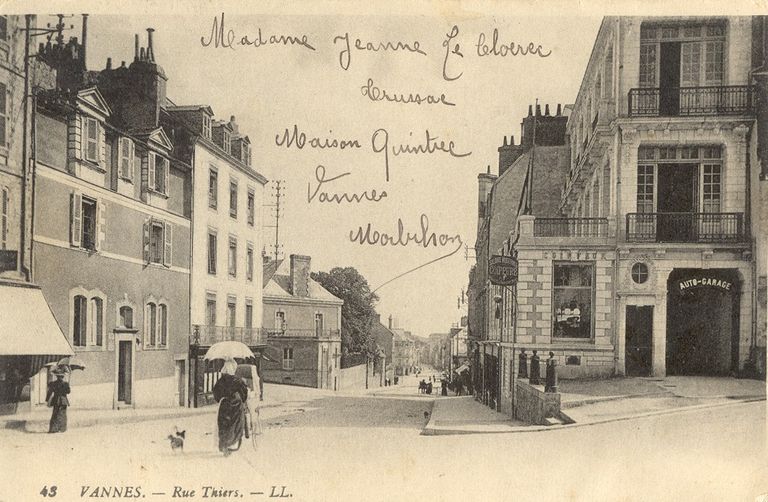 Madame Jeanne Le Cloerec
Crussac
Maison Quintrec
Vannes
Morbihan
COIFFEUR
COIFFEUR
AUTO-GARAGE
43 VANNES. — Rue Thiers. — LL.